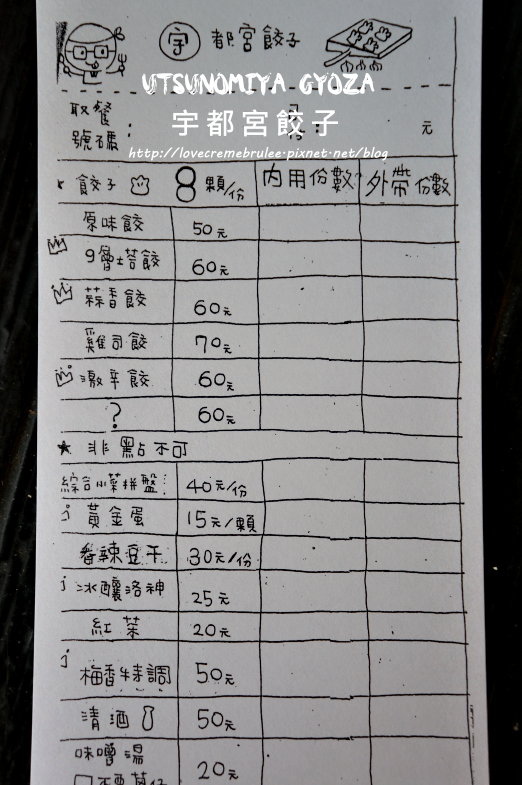 宇 都宮餃子
UTSUNOMIYA GYOZA
宇都宮餃子
http://lovecremebrulee.pixnet.net/blog
取餐
號碼：
元
★ 餃子 8顆/份 內用份數 外帶份數
原味餃 50元
9層塔餃 60元
蒜香餃 60元
雞司餃 70元
激辛餃 60元
? 60元
★ 非點不可
綜合小菜拼盤 40元/份
黃金蛋 15元/顆
香辣豆干 30元/份
冰釀洛神 25元
紅茶 20元
梅香特調 50元
清酒 50元
味噌湯 20元